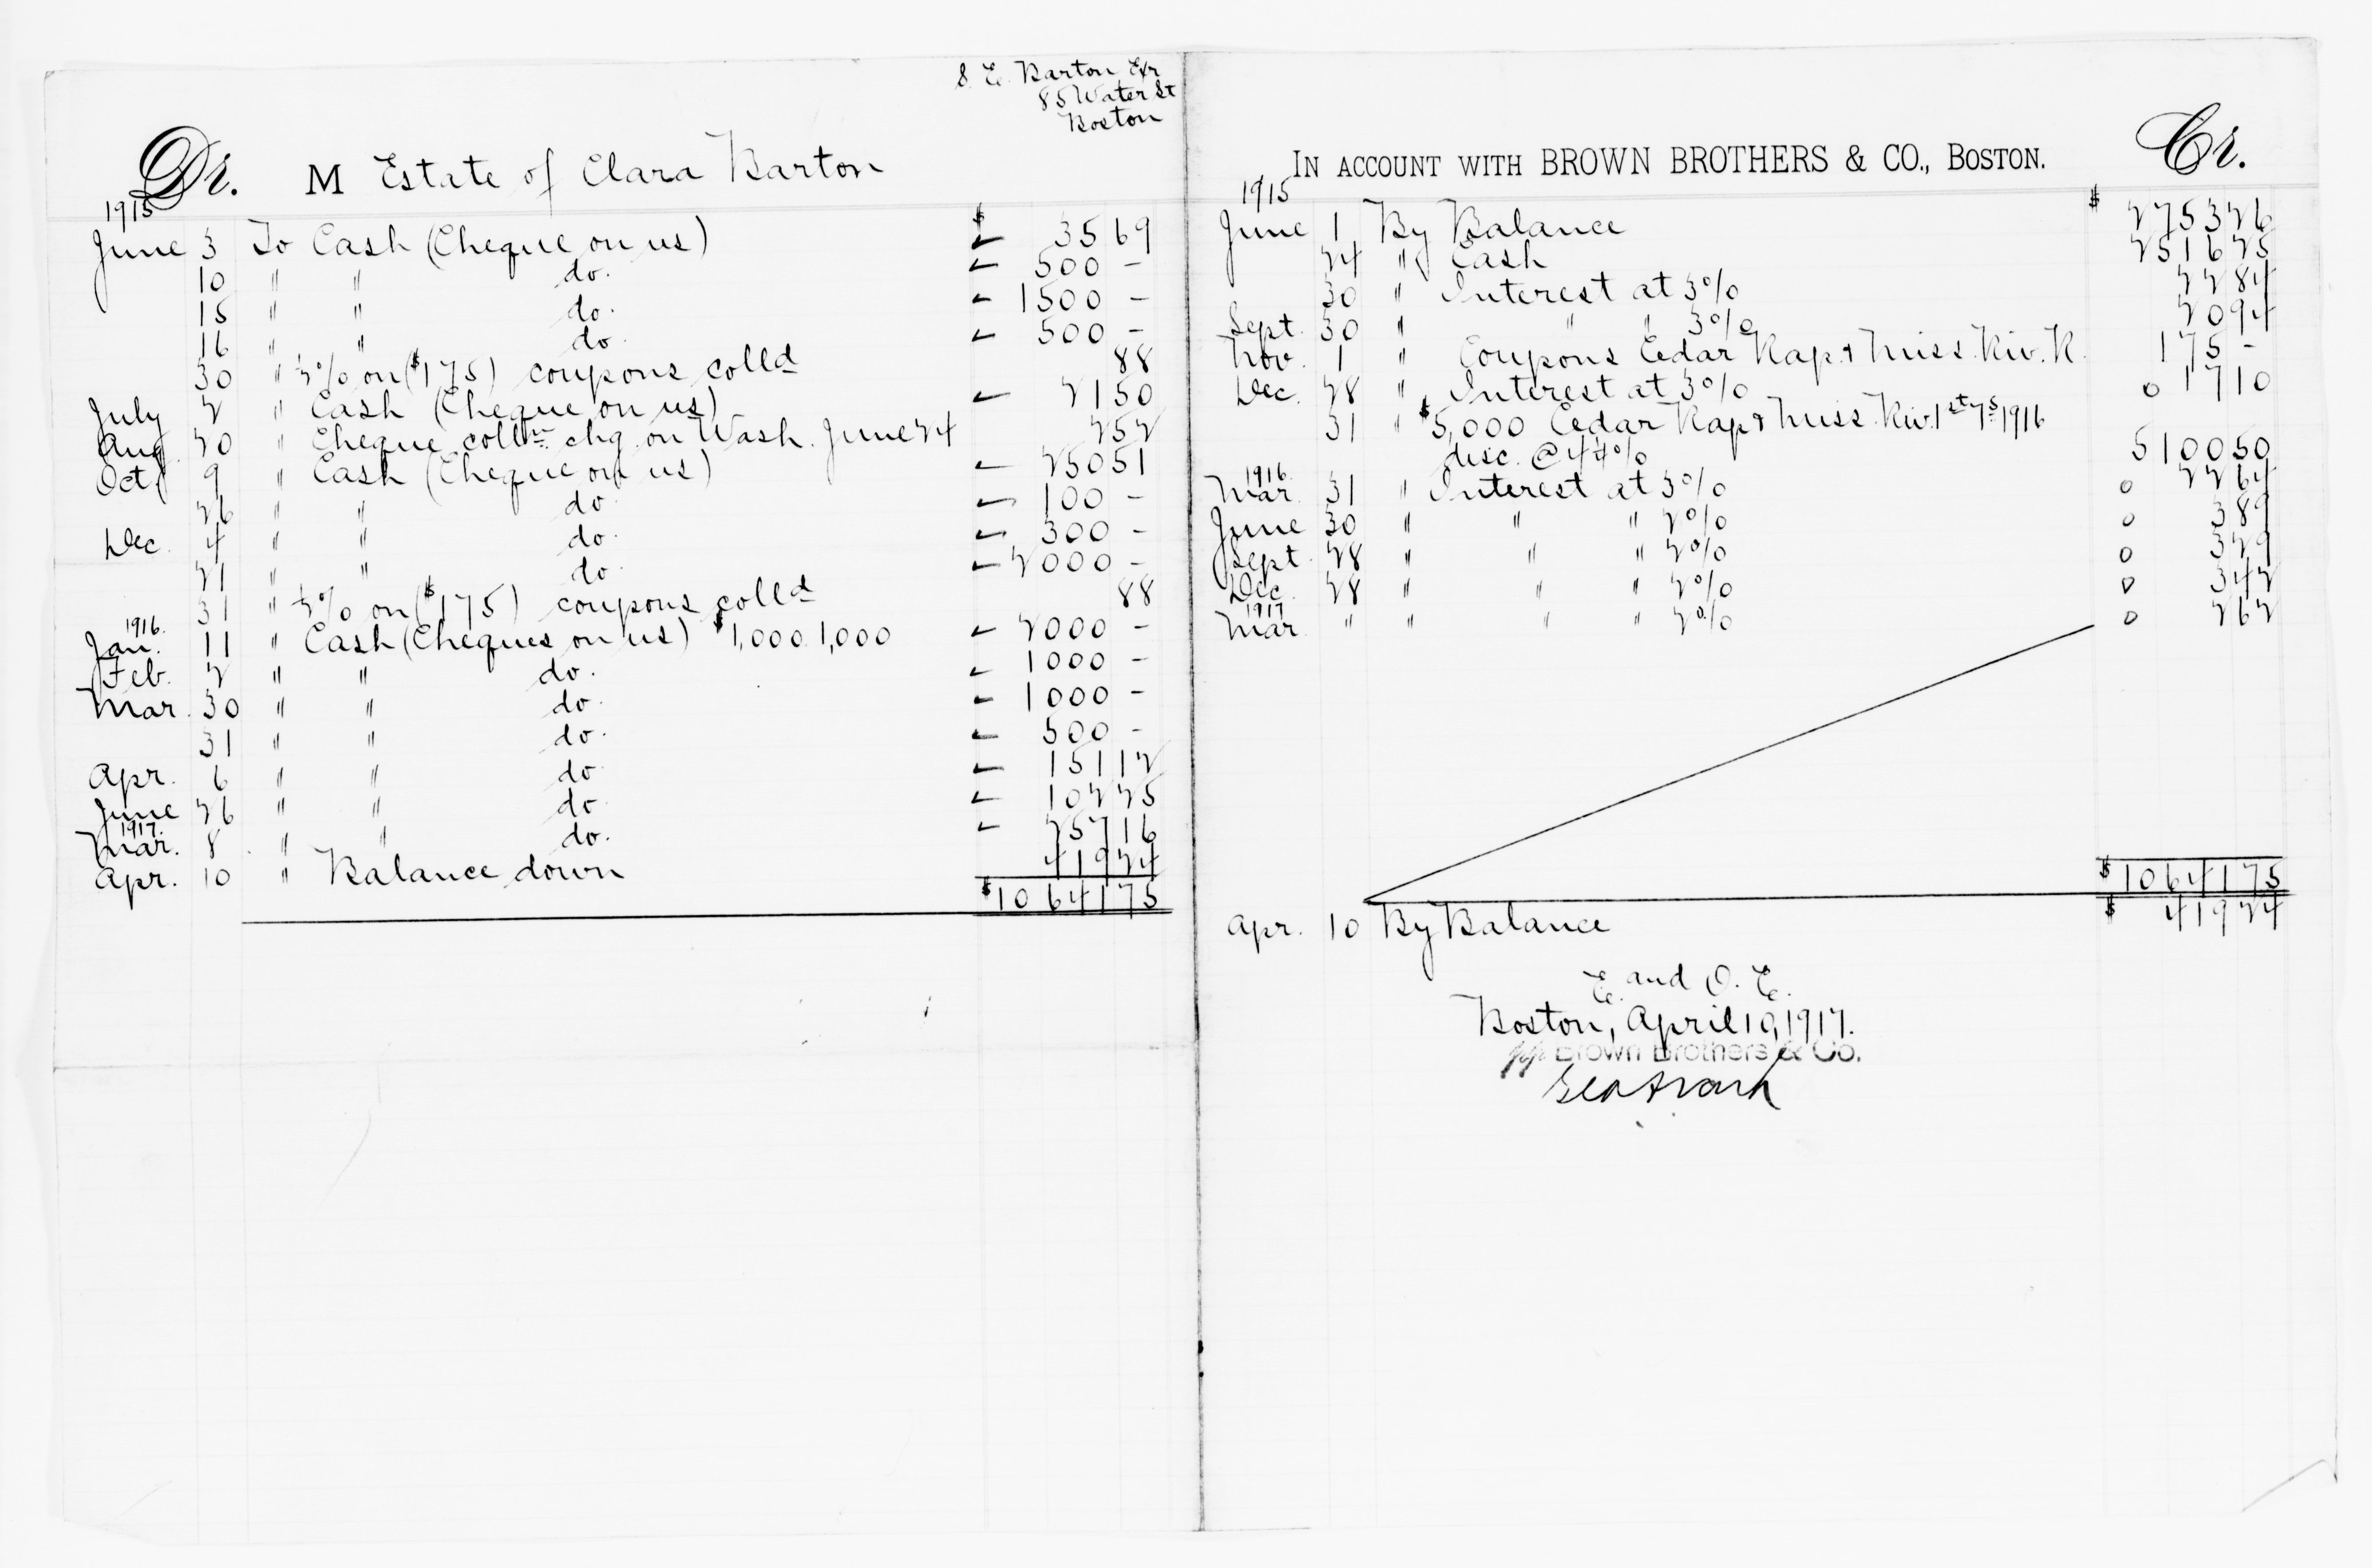 S. E. Barton Exr
85 Water St
Boston
Dr. M Estate of Clara Barton
1915
June 3 To Cash (Cheque on us) $ 35 69
10 " " do. 500 -
15 " " do. 1500 -
16 " " do. 500 -
30 " ½% on ($175) coupons colld 88
July 2 " Cash (Cheque on us) 21 50
Aug. 20 " Cheque colltn chg. on Wash. June 24 2 52
Oct. 9 " Cash (Cheque on us) 250 51
26 " " do. 100 -
Dec. 4 " " do. 300 -
21 " " do. 2000 -
31 " ½% on ($175) coupons colld 88
1916.
Jan. 11 " Cash (Cheques on us) $1,000. 1,000 2000 -
Feb. 2 " " do. 1000 -
Mar. 30 " " do. 1000 -
31 " " do. 500 -
Apr. 6 " " do. 151 12
June 26 " " do. 102 25
1917.
Mar. 8 " " do. 257 16
Apr. 10 " Balance down 419 24
$10 641 75
IN ACCOUNT WITH BROWN BROTHERS & CO., BOSTON. Cr.
1915
June 1 By Balance $ 2753 26
24 " Cash 2516 25
30 " Interest at 3% 22 84
Sept. 30 " " " 3% 20 94
Nov. 1 " Coupons Cedar Rap. & Miss. Riv. R. 175 -
Dec. 28 " Interest at 3% 17 10
31 " $5,000 Cedar Rap & Miss. Riv. 1st 7s 1916
disc. @ 4¼% 5100 50
1916.
Mar. 31 " Interest at 3% 22 64
June 30 " " " 2% 3 89
Sept. 28 " " " 2% 3 29
Dec. 28 " " " 2% 3 42
1917
Mar. " " " " 2% 2 62
$10 641 75
Apr. 10 By Balance $ 419 24
E. and O. E.
Boston, April 10, 1917.
pp Brown Brothers & Co.